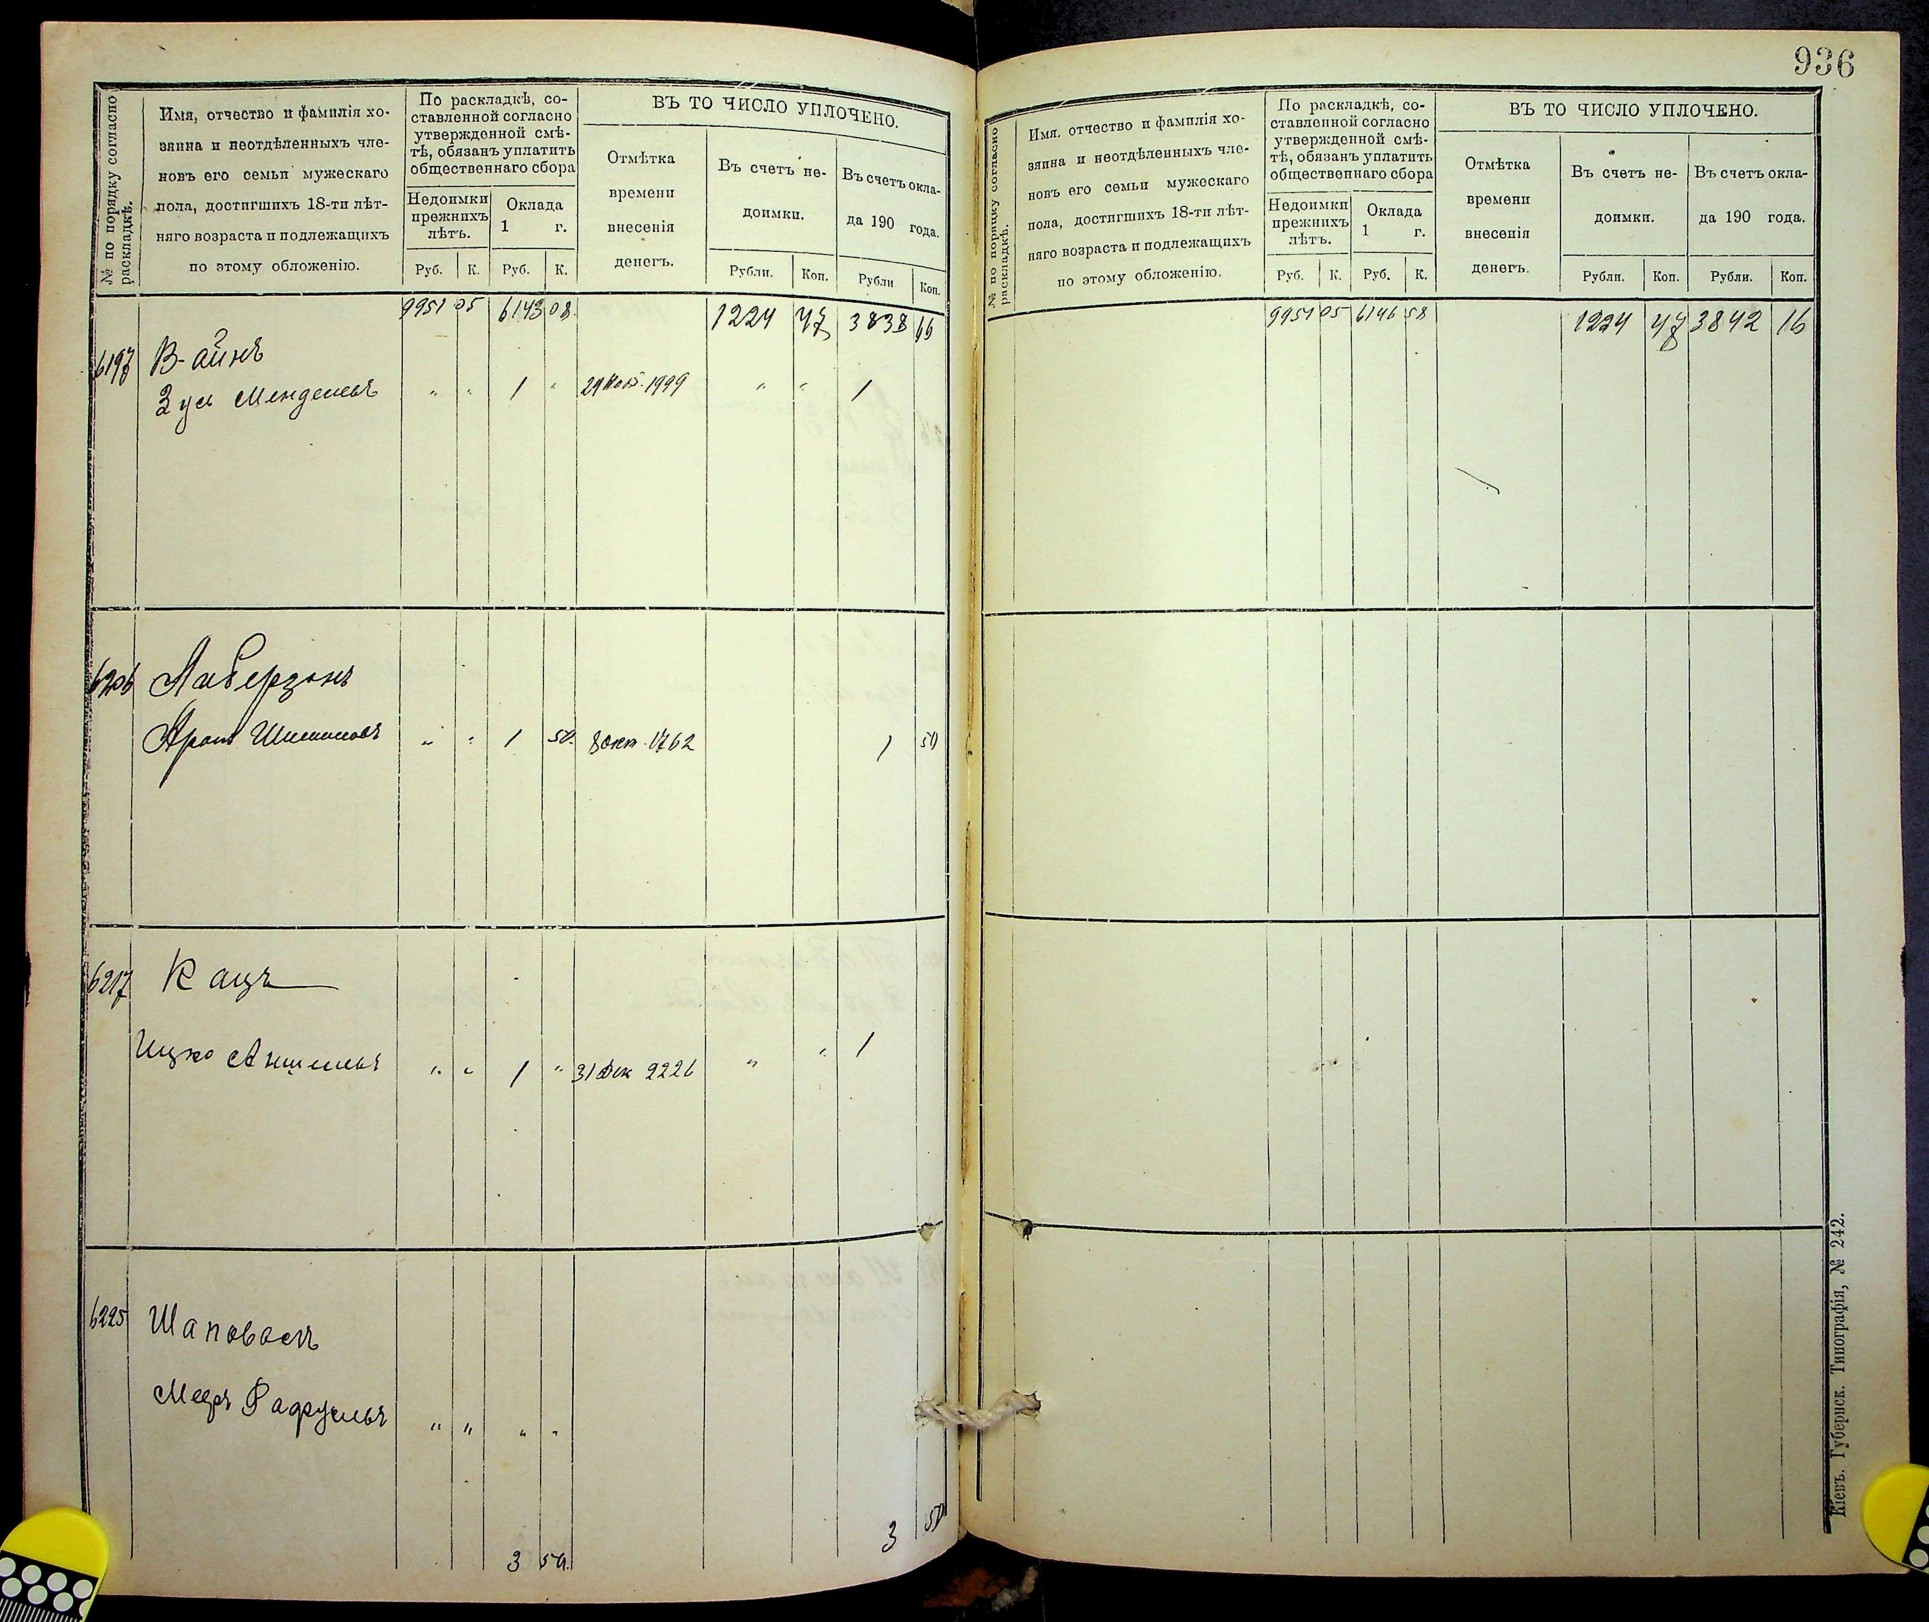 936
№ по порядку согласно раскладкѣ.
Имя, отчество и фамилія хо-
зяина и неотдѣленныхъ чле-
новъ его семьи мужескаго
пола, достигшихъ 18-ти лѣт-
няго возраста и подлежащихъ
по этому обложенію.
По раскладкѣ, со-
ставленной согласно
утвержденной смѣ-
тѣ, обязанъ уплатить
общественнаго сбора
Недоимки
прежнихъ
лѣтъ.
Оклада
1 г.
Руб. К. Руб. К.
ВЪ ТО ЧИСЛО УПЛОЧЕНО.
Отмѣтка
времени
внесенія
денегъ.
Въ счетъ не-
доимки.
Рубли. Коп.
Въ счетъ окла-
да 190 года.
Рубли Коп.
9951 05 6143 08 1224 47 3838 66
6197 Вайнъ
Зусь Менделевъ " " 1 " 29 Нояб. 1999 " " 1
6206 Либерзонъ
Аронъ Шимоновъ " " 1 50 8 Окт. 1762 1 50
6217 Кацъ
Ицко Аншелевъ " " 1 " 31 Дек 2226 " " 1
6225 Шаповалъ
Мееръ Рафуиловъ " " " "
3 50 3 50
№ по порядку согласно раскладкѣ.
Имя. отчество и фамилія хо-
зяина и неотдѣленныхъ чле-
новъ его семьи мужескаго
пола, достигшихъ 18-ти лѣт-
няго возраста и подлежащихъ
по этому обложенію.
По раскладкѣ, со-
ставленной согласно
утвержденной смѣ-
тѣ, обязанъ уплатить
общественнаго сбора
Недоимки
прежнихъ
лѣтъ.
Оклада
1 г.
Руб. К. Руб. К.
ВЪ ТО ЧИСЛО УПЛОЧЕНО.
Отмѣтка
времени
внесенія
денегъ.
Въ счетъ не-
доимки.
Рубли. Коп.
Въ счетъ окла-
да 190 года.
Рубли. Коп.
9951 05 6146 58 1224 47 3842 16
Кіевъ. Губернск. Типографія, № 242.